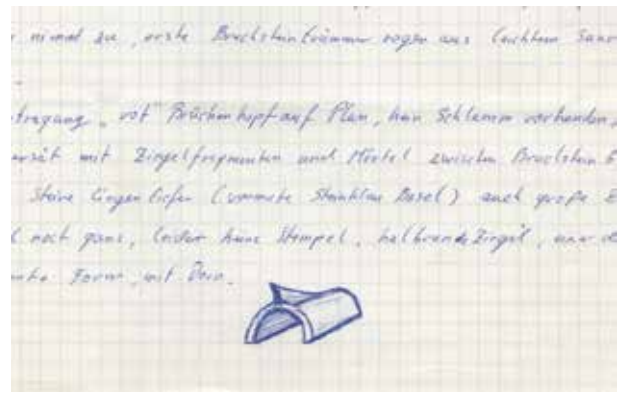 nimmt zu, erste Bruchsteintrümmer ragen aus leichtem San
tragung "rot" Brückenkopf auf Plan, kein Schlamm vorhanden,
ersät mit Ziegelfragmenten und Mörtel zwischen Bruchstein
Steine liegen tiefer (vermute Steinkiste Basel) auch große
noch ganz, leider kein Stempel, halbrunde Ziegel,
Form, mit Dorn.